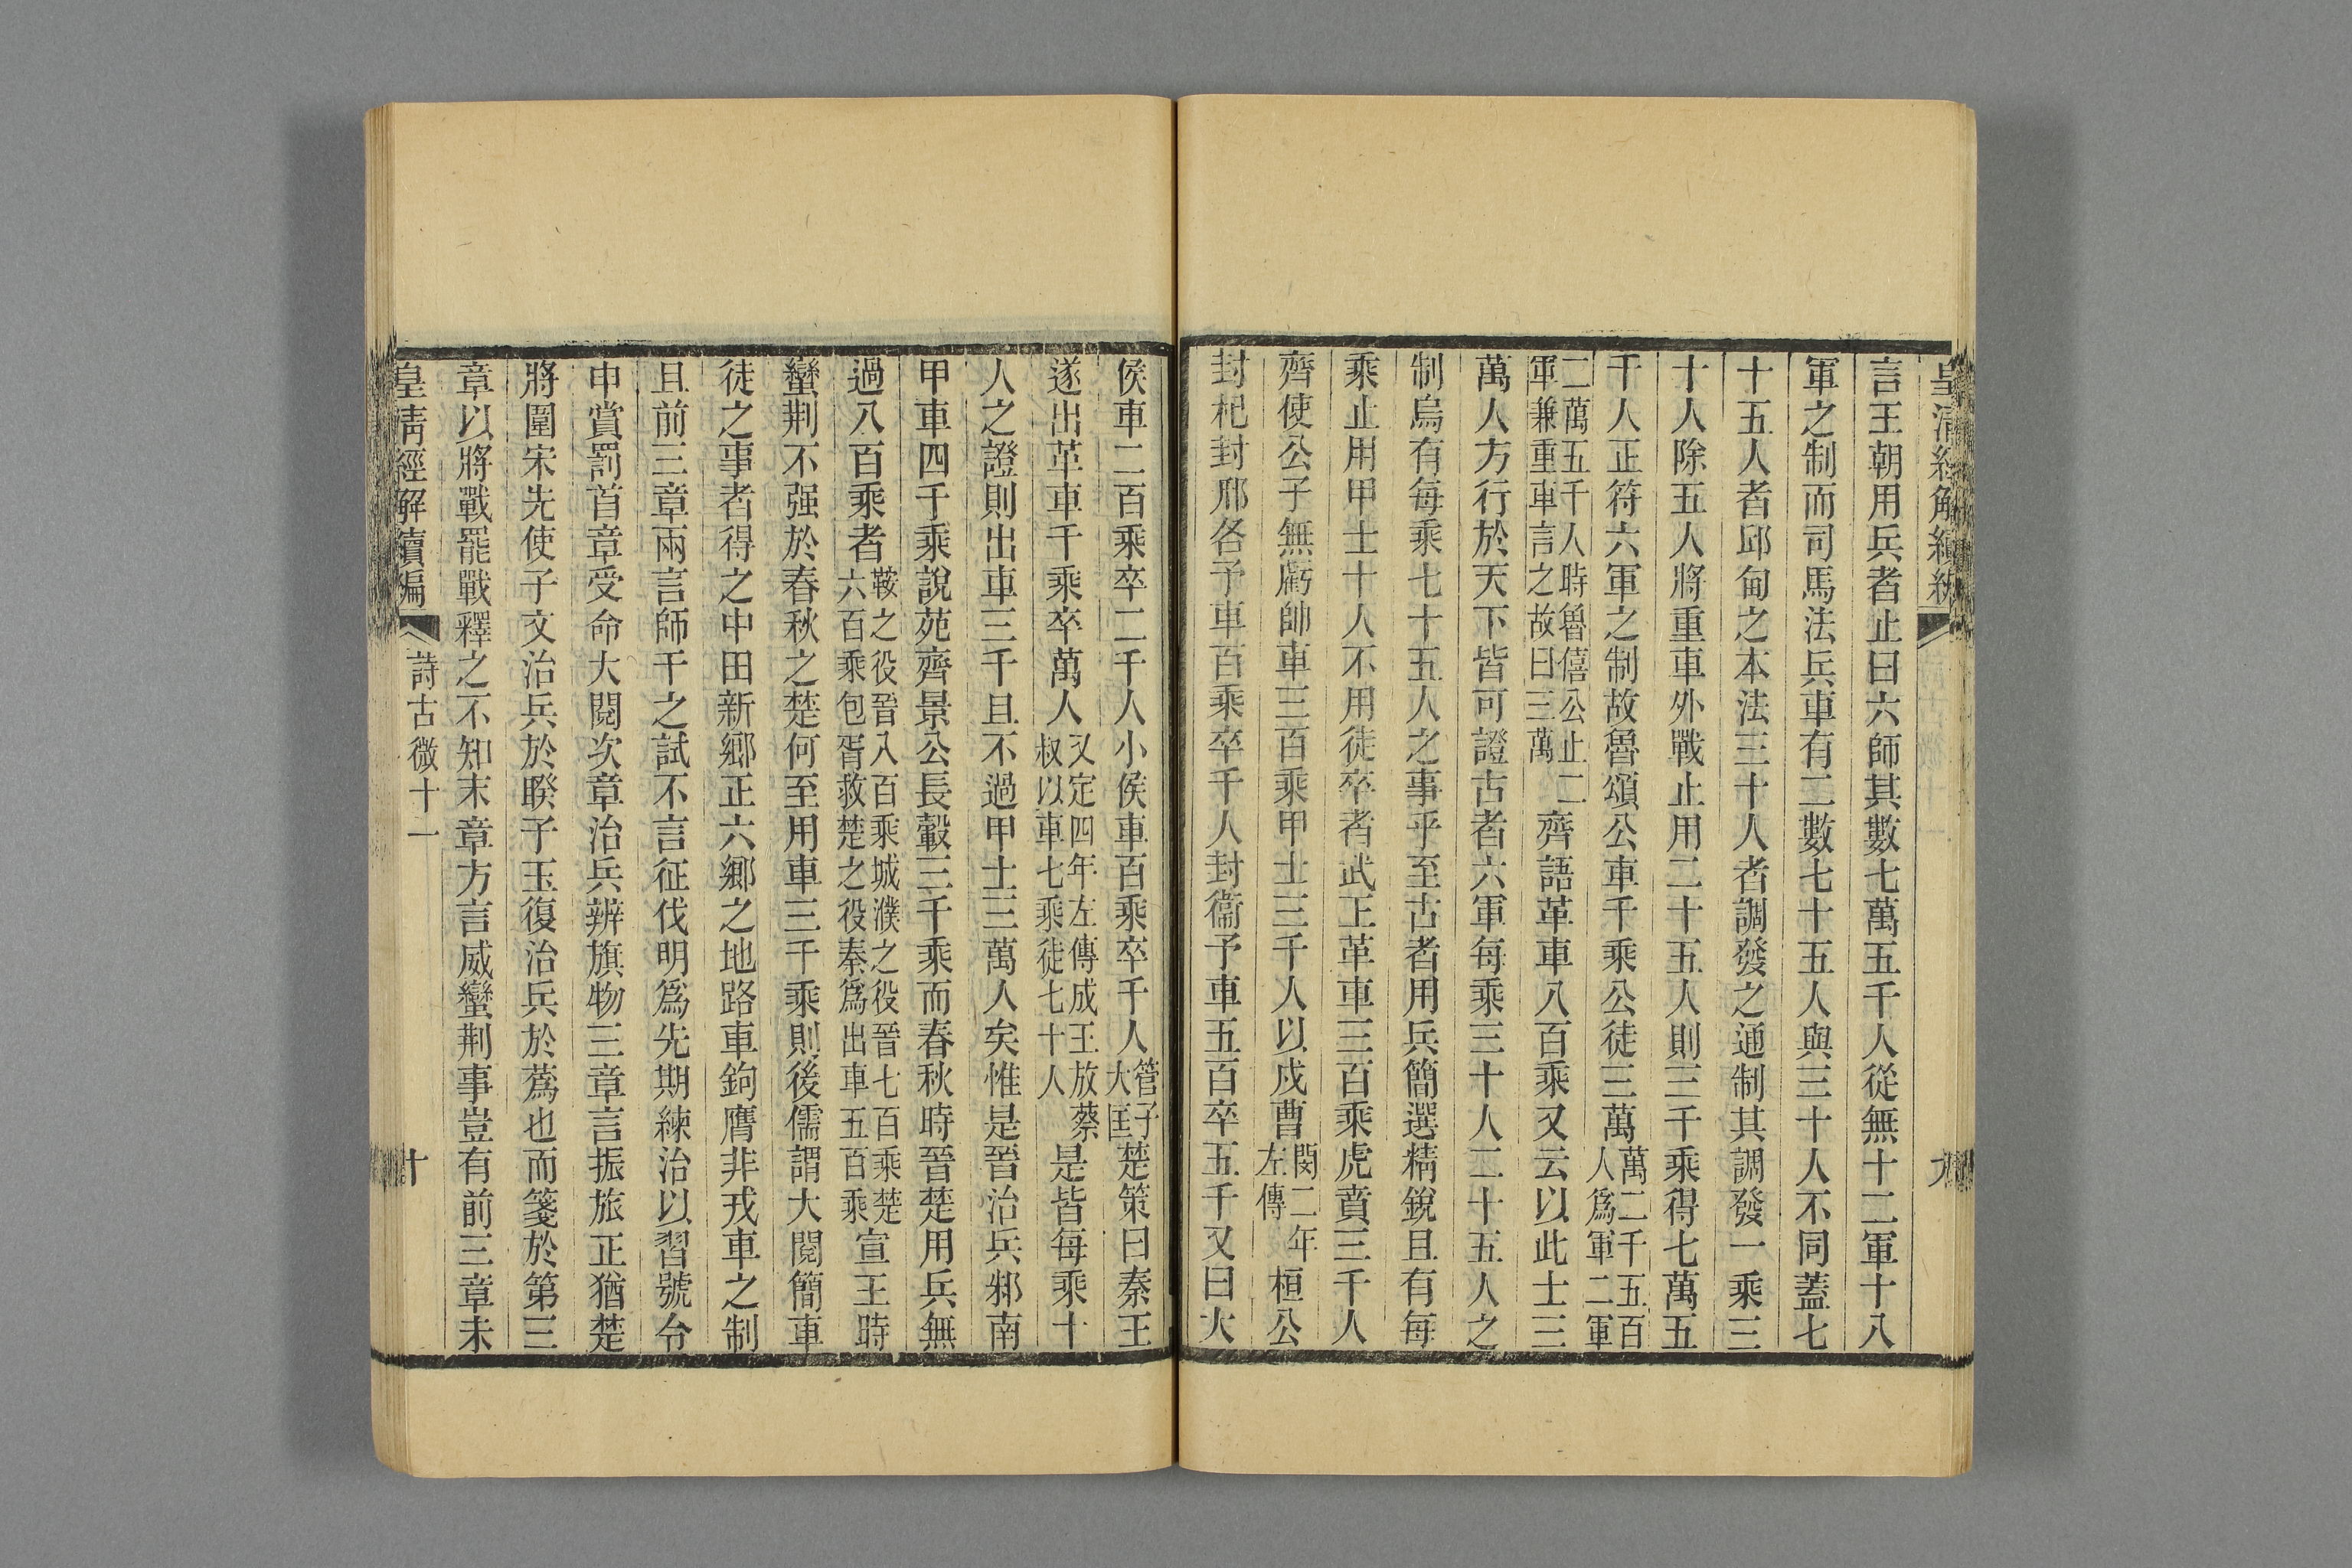 皇清經解續編
九
言王朝用兵者止曰六師其數七萬五千人從無十二軍十八
軍之制而司馬法兵車有二數七十五人與三十人不同蓋七
十五人者邱甸之本法三十人者調發之通制其調發一乘三
十人除五人將重車外戰止用二十五人則三千乘得七萬五
千人正符六軍之制故魯頌公車千乘公徒三萬萬二千五百人爲軍二軍
二萬五千人時魯僖公止二軍兼重車言之故曰三萬齊語革車八百乘又云以此士三
萬人方行於天下皆可證古者六軍每乘三十人二十五人之
制烏有每乘七十五人之事乎至古者用兵簡選精銳且有每
乘止用甲士十人不用徒卒者武王革車三百乘虎賁三千人
齊使公子無虧帥車三百乘甲士三千人以戍曹閔二年左傳桓公
封杞封邢各予車百乘卒千人封衞予車五百卒五千又曰大
侯車二百乘卒二千人小侯車百乘卒千人管子大匡楚策曰秦王
遂出革車千乘卒萬人又定四年左傳成王放蔡叔以車七乘徒七十人是皆每乘十
人之證則出車三千且不過甲士三萬人矣惟是晉治兵邾南
甲車四千乘說苑齊景公長轂三千乘而春秋時晉楚用兵無
過八百乘者鞍之役晉八百乘城濮之役晉七百乘楚六百乘包胥救楚之役秦爲出車五百乘宣王時
蠻荆不强於春秋之楚何至用車三千乘則後儒謂大閱簡車
徒之事者得之中田新鄉正六鄉之地路車鉤膺非戎車之制
且前三章兩言師干之試不言征伐明爲先期練治以習號令
申賞罰首章受命大閱次章治兵辨旗物三章言振旅正猶楚
將圍宋先使子文治兵於睽子玉復治兵於蒍也而箋於第三
章以將戰罷戰釋之不知末章方言威蠻荆事豈有前三章未
皇清經解續編
詩古微十一
十